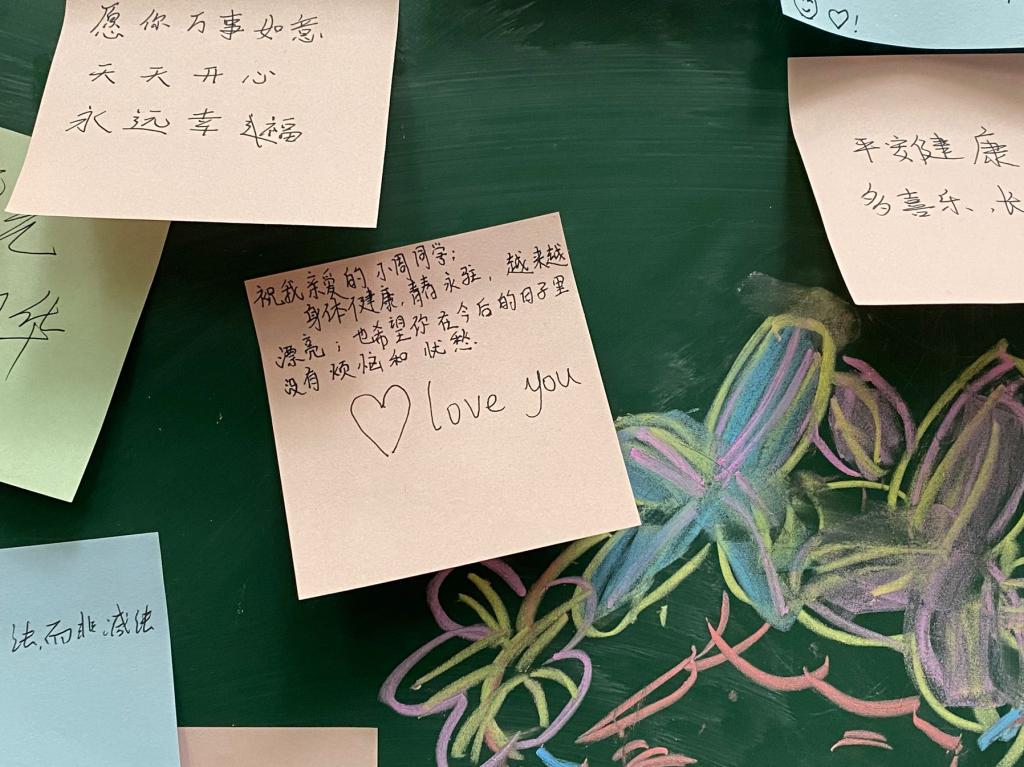 愿你万事如意
天天开心
永远幸福
!
平安健康
多喜乐、长
祝我亲爱的小周同学;
身体健康,青春永驻,越来越
漂亮;也希望你在今后的日子里
没有烦恼和忧愁.
love you
法,而非减法